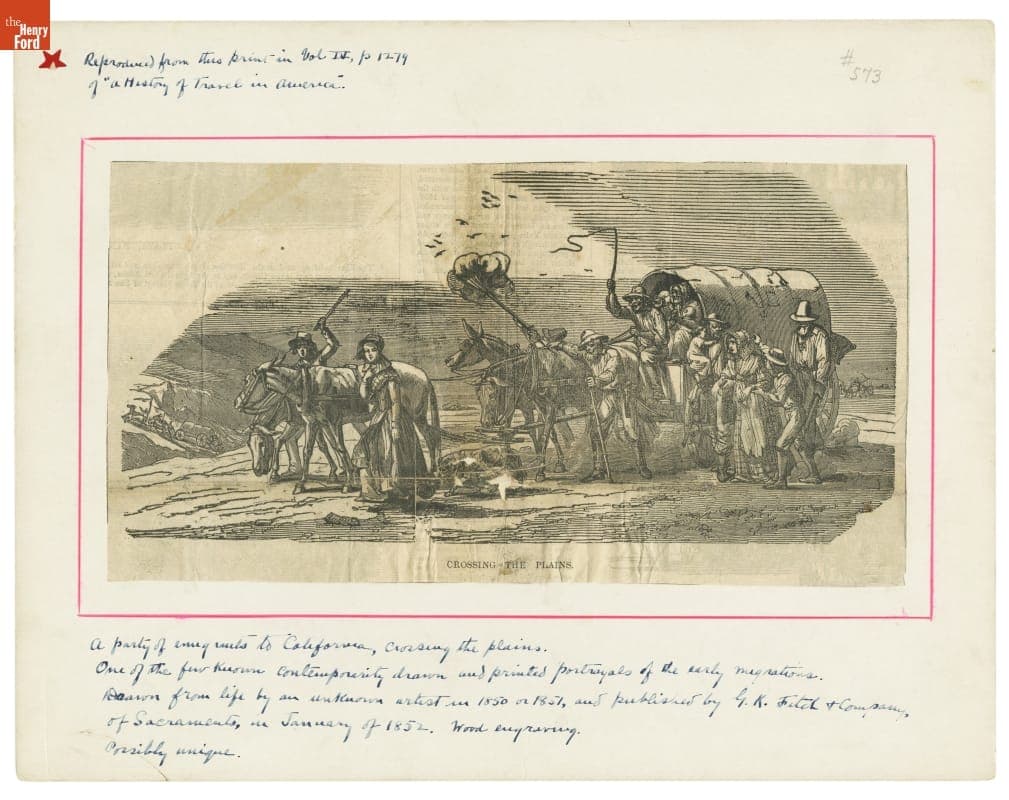 the
Henry
Ford
Reproduced from this print in Vol IV, p 1279
of "a History of Travel in America".
#
573
CROSSING THE PLAINS.
A party of emigrants to California, crossing the plains.
One of the few known contemporarity drawn and printed portrayals of the early migrations.
Drawn from life by an unknown artist in 1850 or 1851, and published by G. K. Fitch & Company,
of Sacramento, in January of 1852. Wood engraving.
Possibly unique.